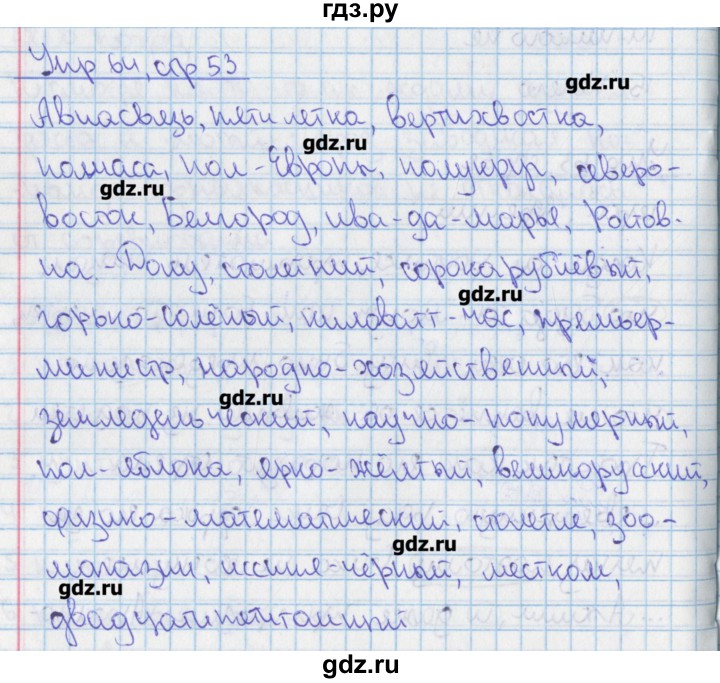 гдз.ру
Упр 64, стр 53
gdz.ru
Авиасвязь, пятилетка, вертихвостка,
gdz.ru
полчаса, пол-Европы, полукруг, северо-
gdz.ru
восток, Белгород, ива-да-марья, Ростов-
на-Дону, столетний, сорокарублёвый,
gdz.ru
горько-солёный, киловатт-час, премьер-
министр, народно-хозяйственный,
gdz.ru
земледельческий, научно-популярный,
пол-яблока, ярко-жёлтый, великорусский,
физико-математический, столетие, зоо-
gdz.ru
магазин, иссиня-чёрный, местком,
gdz.ru
двадцатипятитомный
gdz.ru